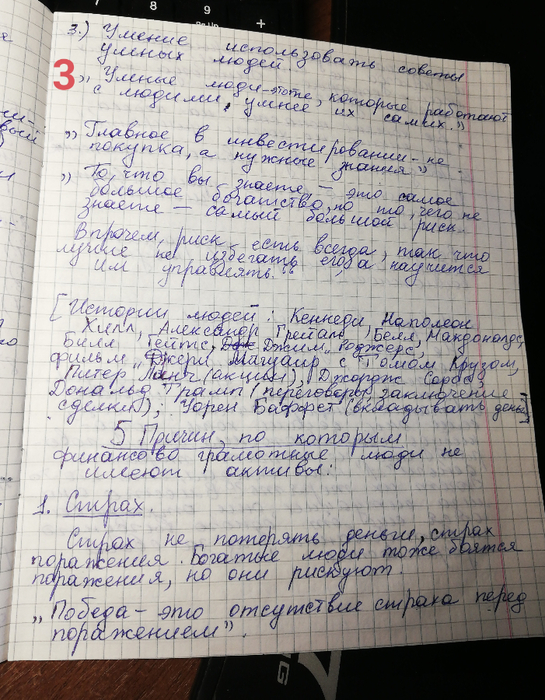 7 8 9 +
3.) Умение использовать советы
умных людей.
3
„Умные люди-это те, которые работают
с людьми, умнее их самих."
„Главное в инвестировании - не
покупка, а нужные знания"
„То, что вы знаете - это самое
большое богатство, но то, чего не
знаете - самый большой риск.
Впрочем, риск есть всегда, так что
лучше не избегать его, а научится
им управлять."
[Истории людей: Кеннеди, Наполеон
Хилл, Александр Грейам Белл, Макдональдс,
Билл Гейтс, Джим Роджерс,
фильм „Джери Магуаир с Томом Крузом,
Питер Линч (акции), Джордж Сорос,
Дональд Трамп (переговоры, заключение
сделки), Уорен Баффет (вкладывать деньги)]
5 Причин, по которым
финансово грамотные люди не
имеют активы:
1. Страх.
Страх не потерять деньги, страх
поражения. Богатые люди тоже боятся
поражения, но они рискуют.
„Победа - это отсутствие страха перед
поражением".